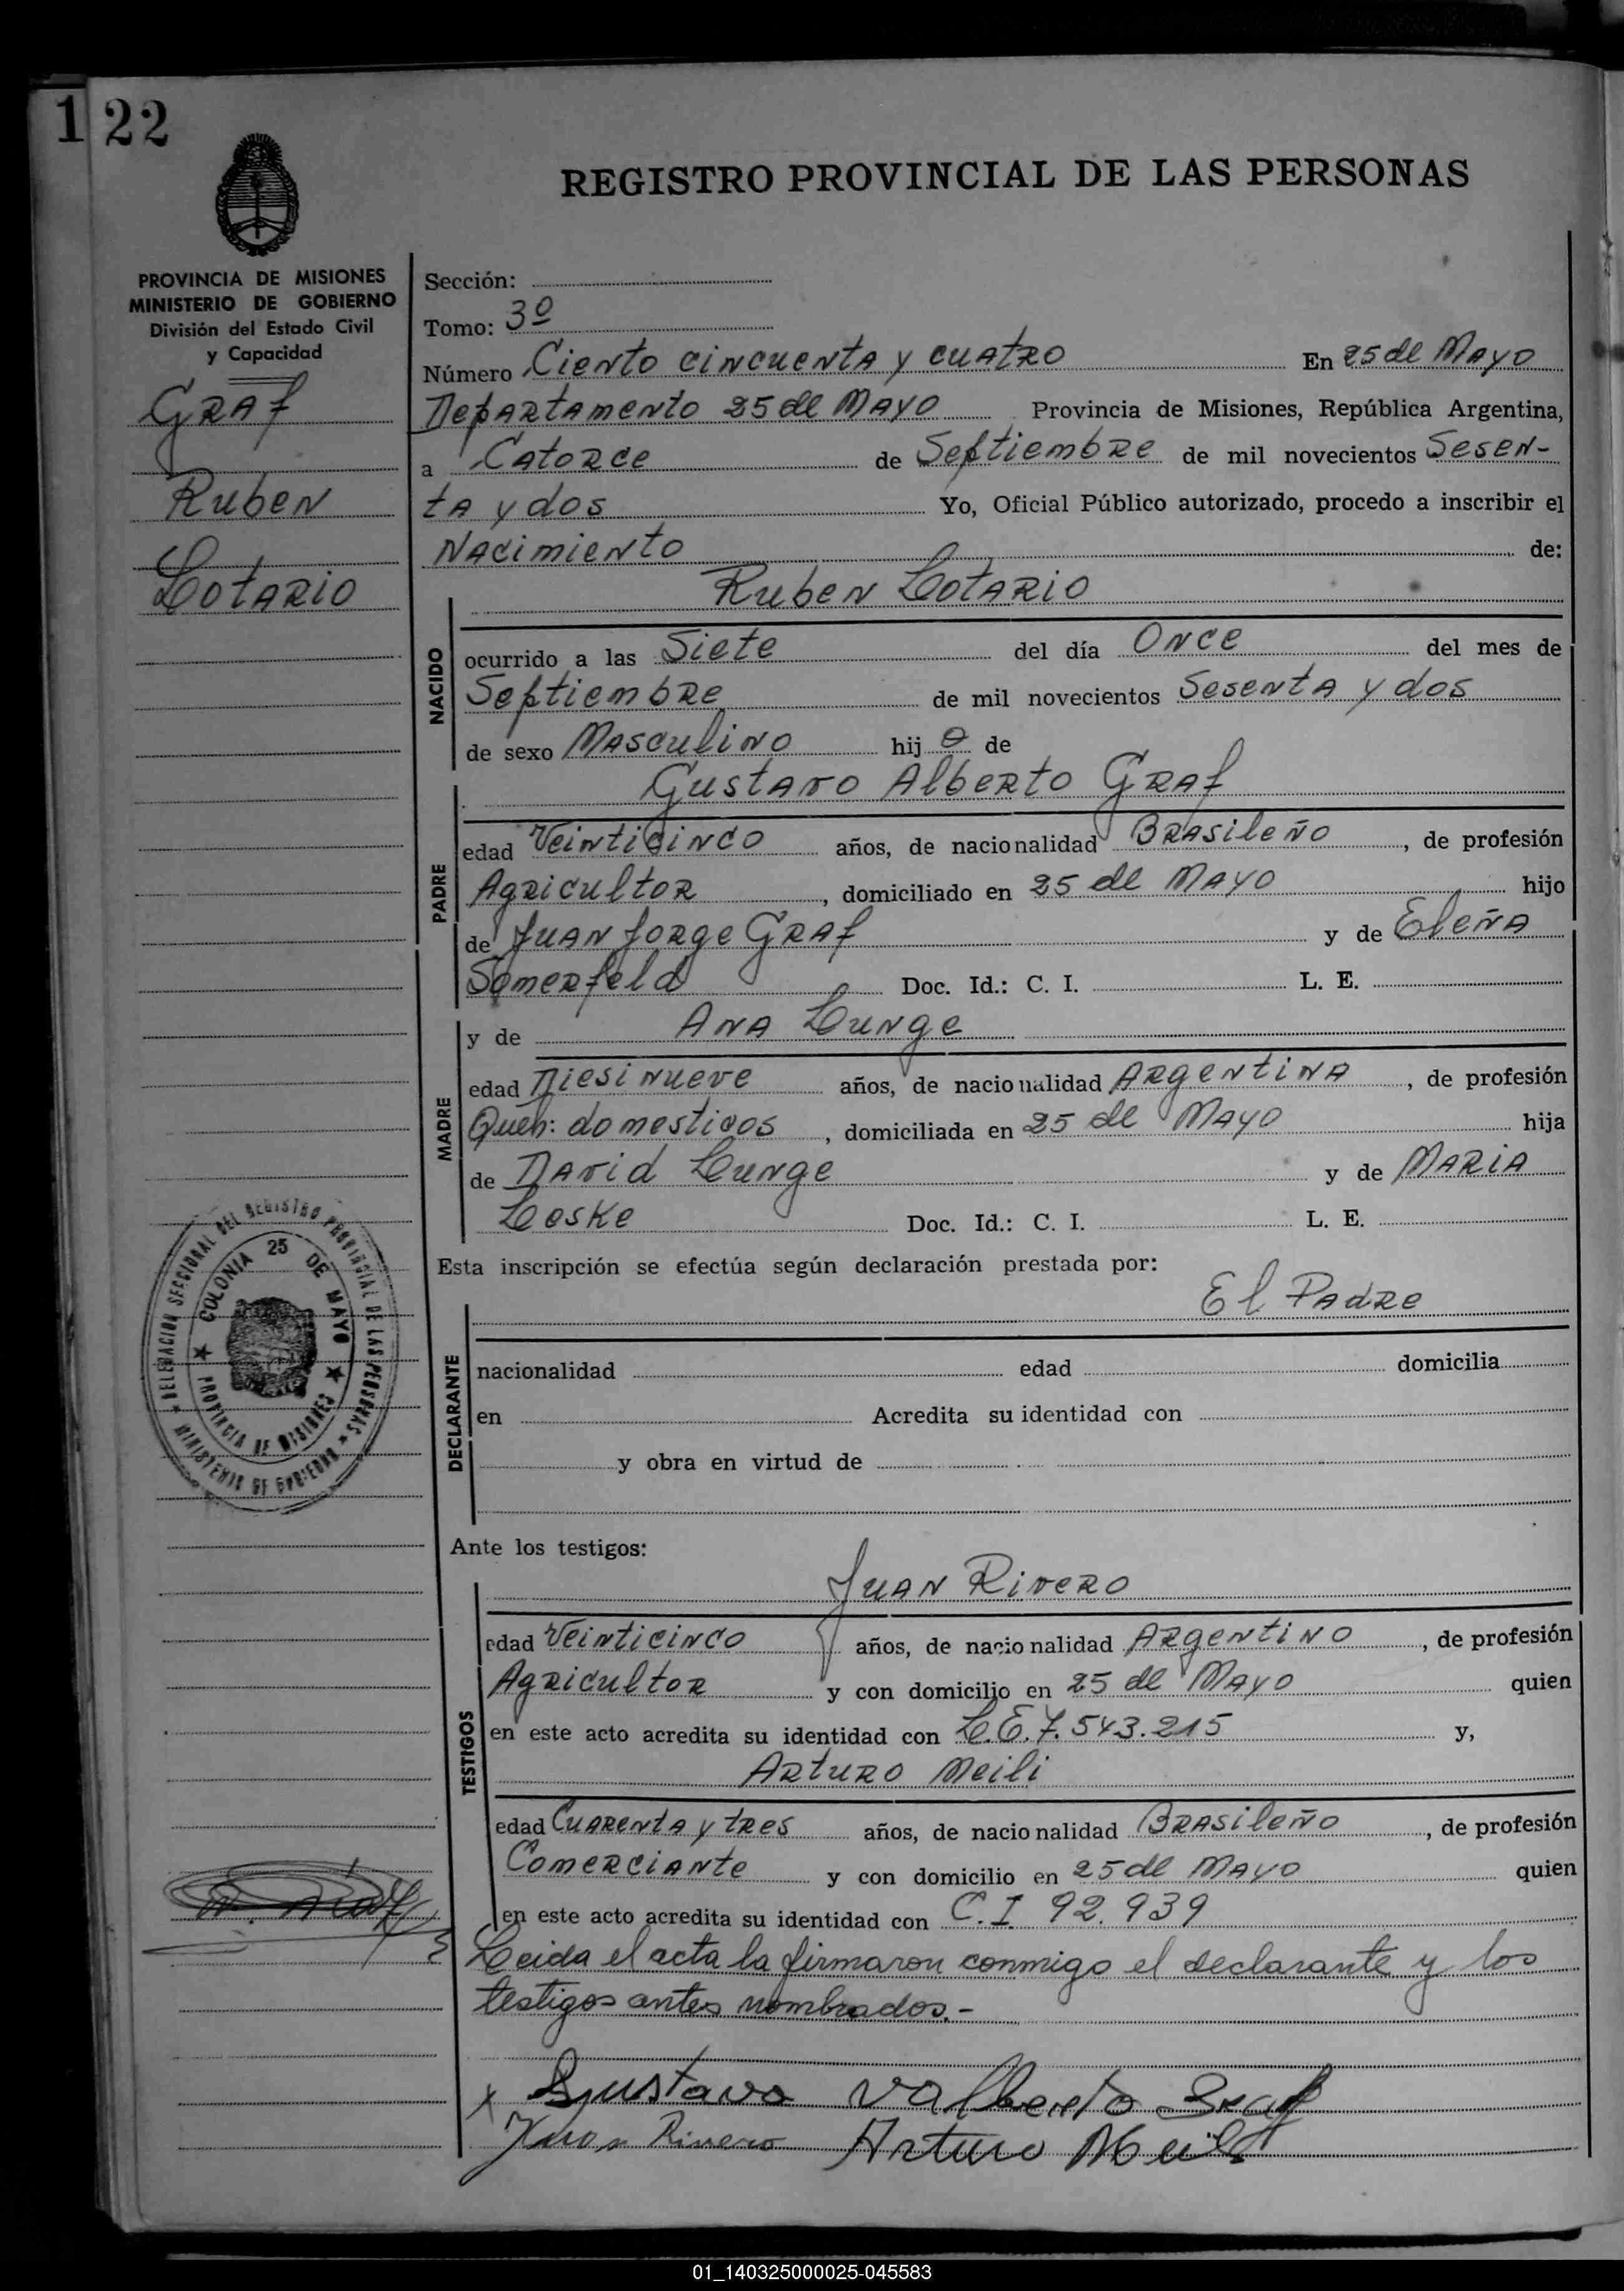 122
REGISTRO PROVINCIAL DE LAS PERSONAS
PROVINCIA DE MISIONES
MINISTERIO DE GOBIERNO
División del Estado Civil
y Capacidad
Graf
Ruben
Lotario
Sección:
Tomo: 3º
Número Ciento cincuenta y cuatro En 25 de Mayo
Departamento 25 de Mayo Provincia de Misiones, República Argentina,
a Catorce de Septiembre de mil novecientos Sesen-
ta y dos Yo, Oficial Público autorizado, procedo a inscribir el
Nacimiento de:
Ruben Lotario
NACIDO
ocurrido a las Siete del día Once del mes de
Septiembre de mil novecientos Sesenta y dos
de sexo Masculino hij o de
Gustavo Alberto Graf
PADRE
edad Veinticinco años, de nacionalidad Brasileño, de profesión
Agricultor, domiciliado en 25 de Mayo hijo
de Juan Jorge Graf y de Eleña
Somerfeld Doc. Id.: C. I. L. E.
y de Ana Lunge
MADRE
edad Diesinueve años, de nacionalidad Argentina, de profesión
Queh: domesticos, domiciliada en 25 de Mayo hija
de David Lunge y de Maria
Leske Doc. Id.: C. I. L. E.
Esta inscripción se efectúa según declaración prestada por:
El Padre
DECLARANTE
nacionalidad edad domicilia
en Acredita su identidad con
y obra en virtud de
DELEGACION SECCIONAL DEL REGISTRO PROVINCIAL DE LAS PERSONAS
MINISTERIO DE GOBIERNO
COLONIA 25 DE MAYO
PROVINCIA DE MISIONES
Ante los testigos:
Juan Rivero
TESTIGOS
edad Veinticinco años, de nacionalidad Argentino, de profesión
Agricultor y con domicilio en 25 de Mayo quien
en este acto acredita su identidad con L.E. 7.543.215 y,
Arturo Meili
edad Cuarenta y tres años, de nacionalidad Brasileño, de profesión
Comerciante y con domicilio en 25 de Mayo quien
en este acto acredita su identidad con C.I. 92.939
Leida el acta la firmaron conmigo el declarante y los
testigos antes nombrados.-
x Gustavo Valberto Graf
Juan Rivero Arturo Meili
01_140325000025-045583